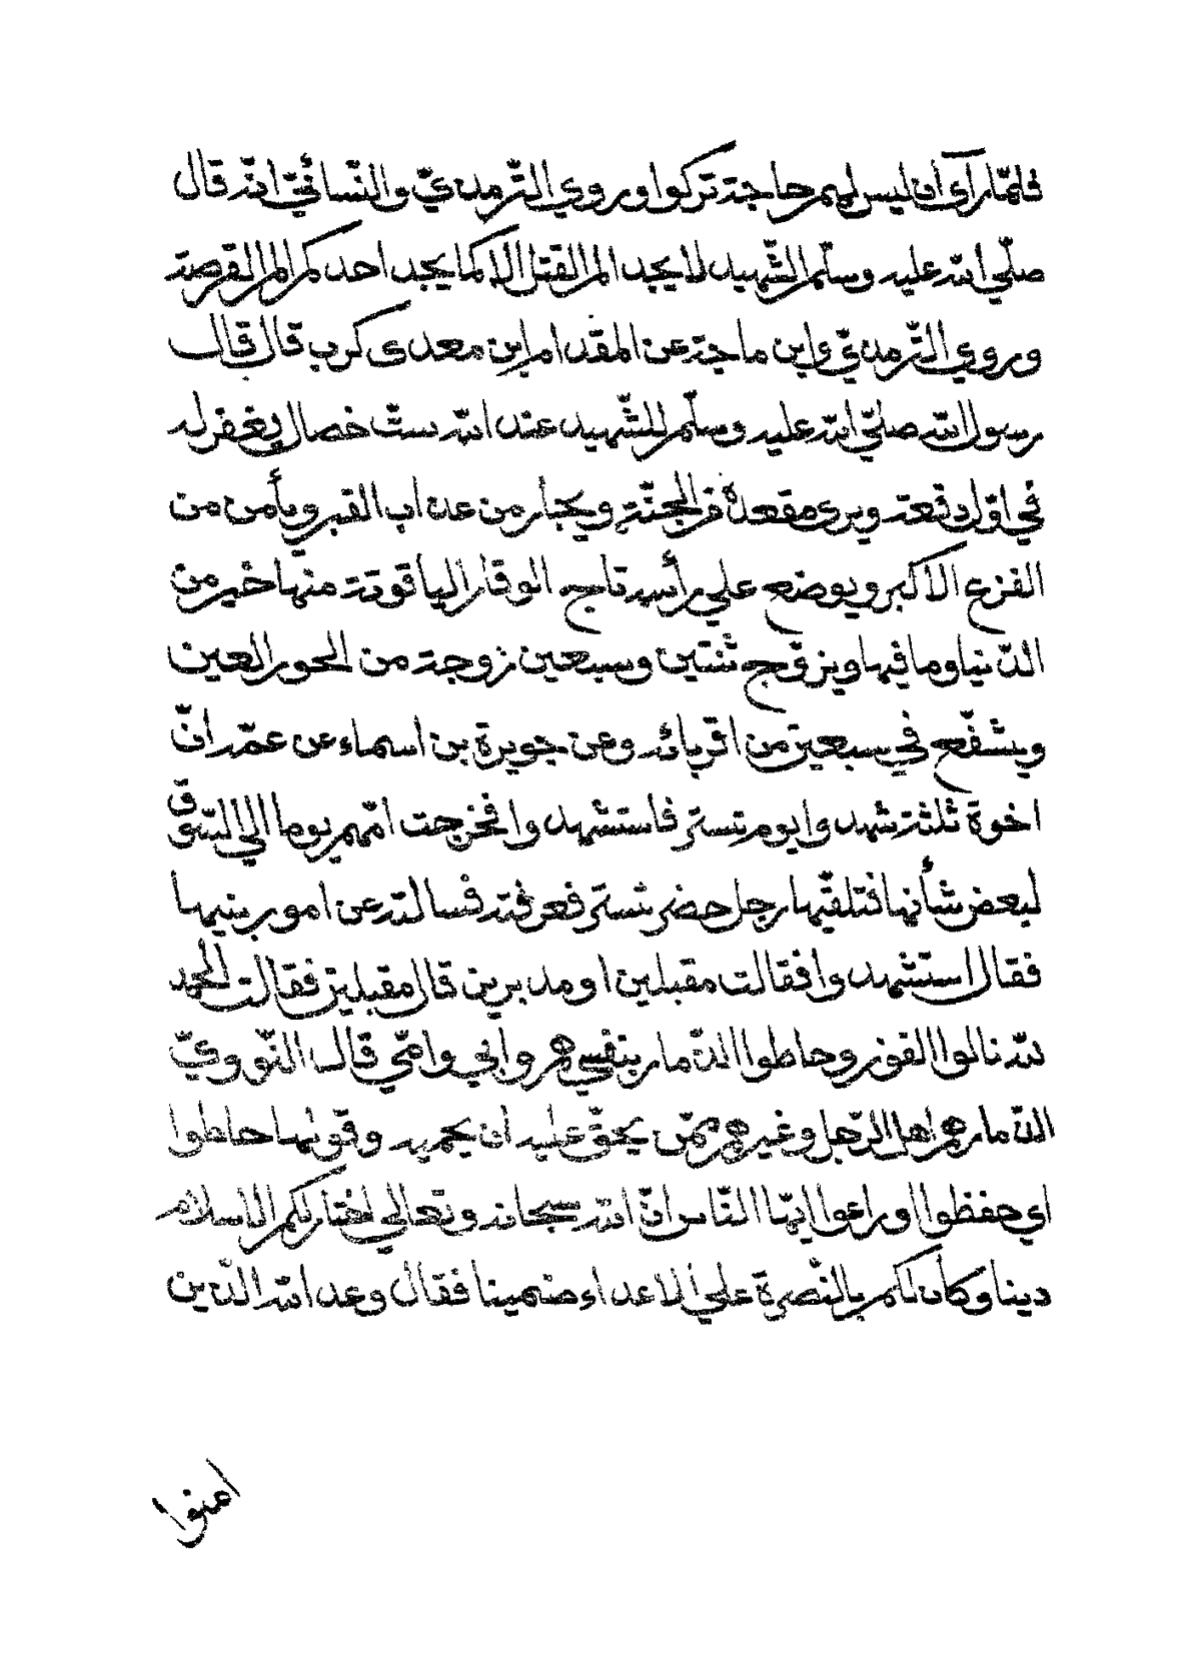 فلمّا رآى ان ليس لهم حاجة تركوا وروي التّرمذيّ والنّسائيّ انّه قال
صلّي الله عليه وسلّم الشّهيد لا يجد الم القتل الا كما يجد احدكم الم القرصة
وروي التّرمذيّ وابن ماجة عن المقدام ابن معدى كرب قال قال
رسول الله صلّي الله عليه وسلّم للشّهيد عند الله ستّ خصال يغفر له
في اوّل دفعة ويرى مقعده من الجنّة ويجار من عذاب القبر ويأمن من
الفزع الاكبر ويوضع علي رأسه تاج الوقار الياقوتة منها خير من
الدّنيا وما فيها ويزوّج ثنتين وسبعين زوجة من الحور العين
ويشفّع في سبعين من اقربائه وعن جويرة بن اسماء عن عمّه انّ
اخوة ثلثة شهدوا يوم تستر فاستشهدوا فخرجت امّهم يوما الي السّوق
لبعض شأنها فتلقّيها رجل حضر تستر فعرفته فسالته عن امور بنيها
فقال استشهدوا فقالت مقبلين او مدبرين قال مقبلين فقالت الحمد
لله نالوا الفوز وحاطوا الذّمار بنفسي هم وابي وامّي قال النّوويّ
الذّمار هم اهل الرّجل وغيرهم ممّن يحقّ عليه ان يحميه وقولها حاطوا
اي حفظوا وراعوا ايّها النّاس انّ الله سبحانه وتعالي اختار لكم الاسلام
دينا وكان لكم بالنّصرة علي الاعداء ضمينا فقال وعد الله الّذين
امنوا